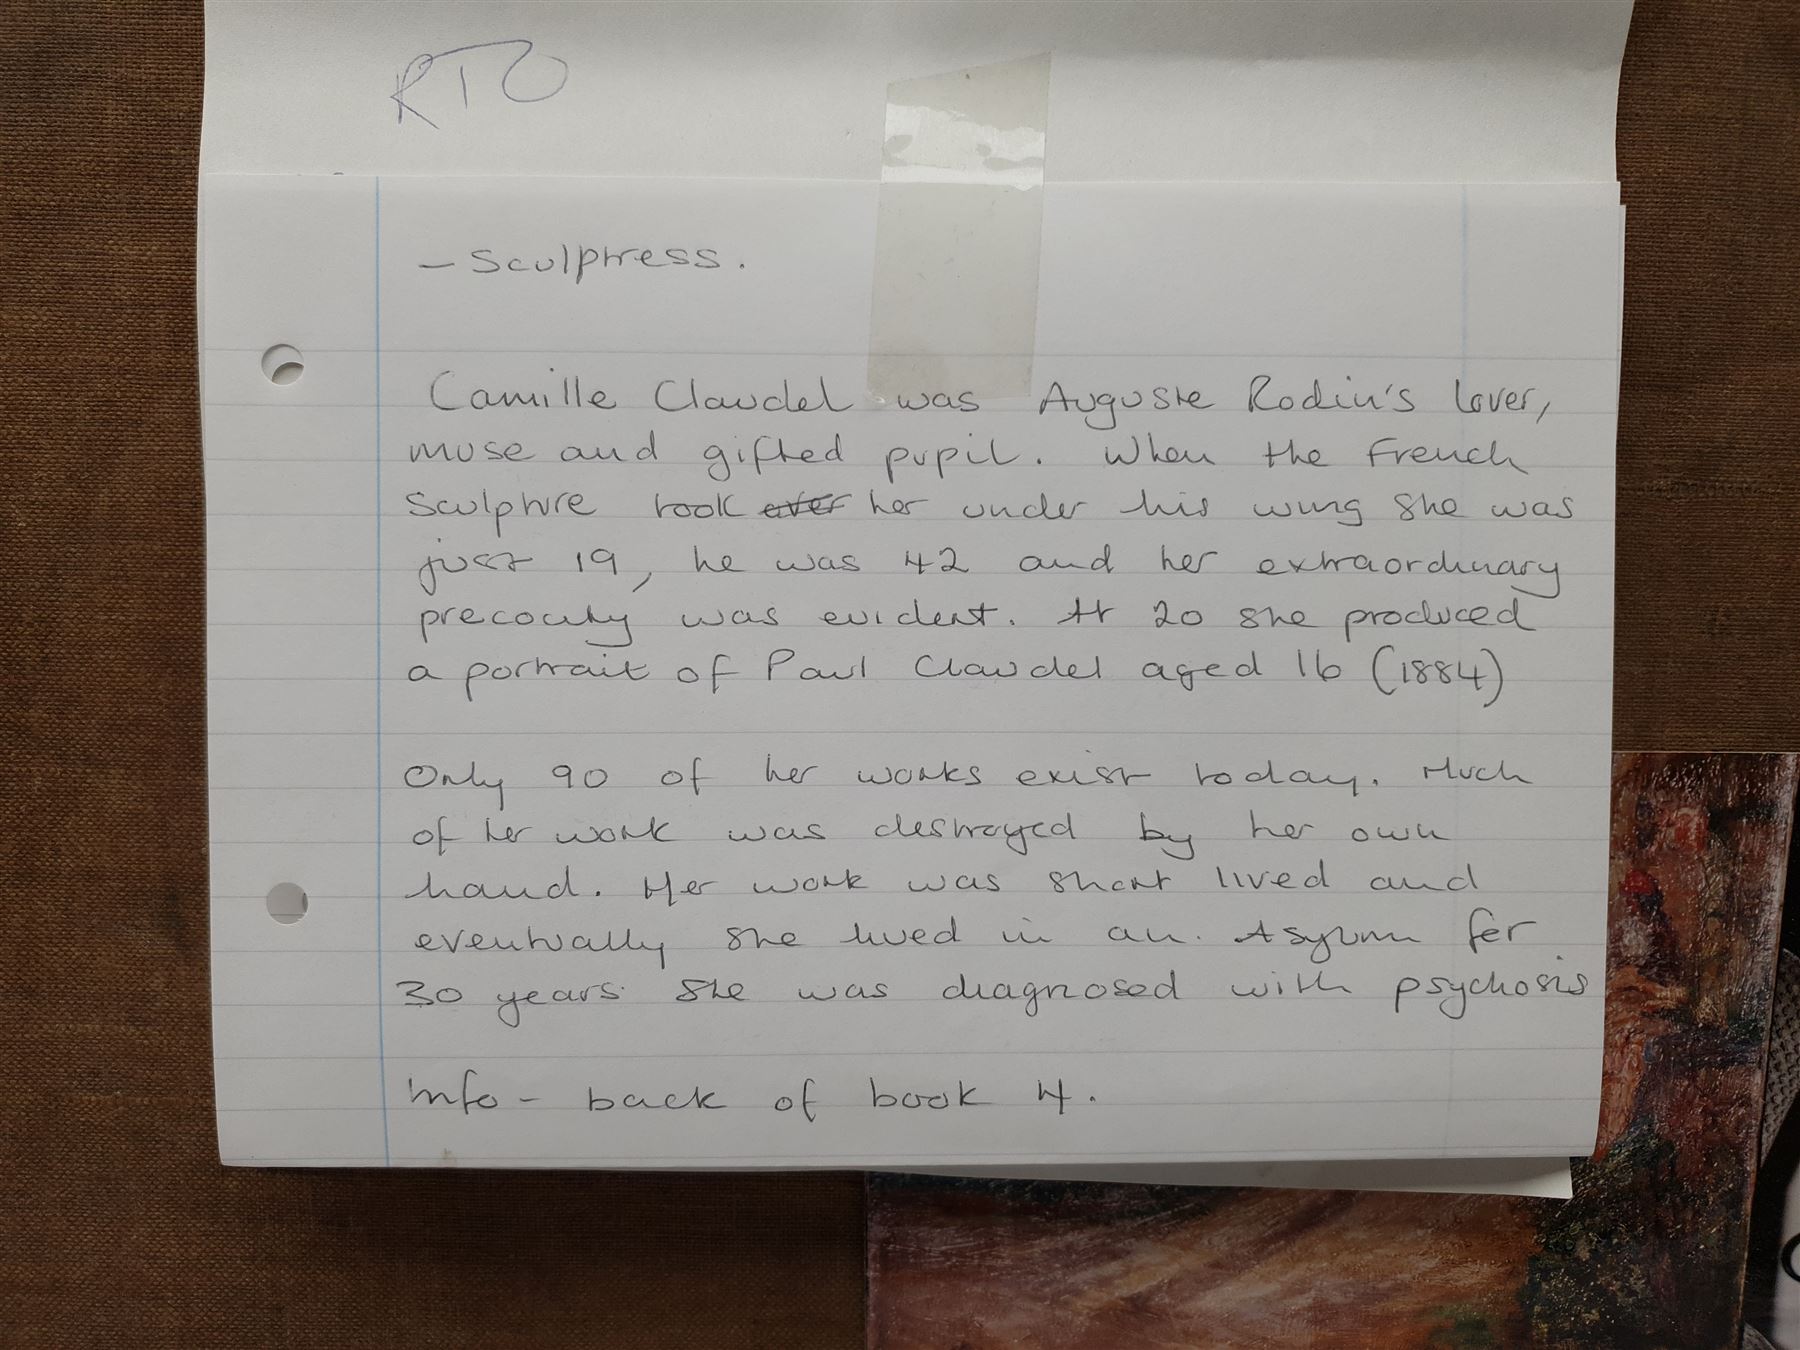 RTO
– Sculptress.
Camille Claudel was Auguste Rodin's lover,
muse and gifted pupil. When the French
Sculptire took over her under his wing she was
just 19, he was 42 and her extraordinary
precocity was evident. At 20 she produced
a portrait of Paul Claudel aged 16 (1884)
Only 90 of her works exist today. Much
of her work was destroyed by her own
hand. Her work was short lived and
eventually she lived in an. Asylum for
30 years. She was diagnosed with psychosis
Info - back of book 4.